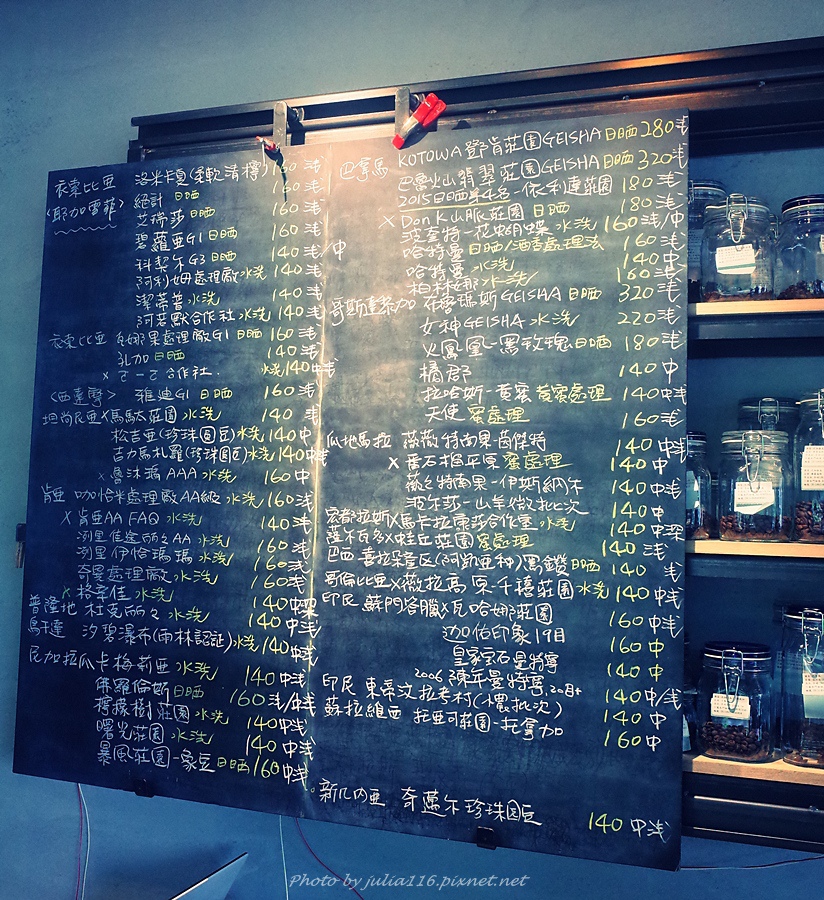 衣索比亞 洛米卡夏(柔軟清檸) 160 浅
〈耶加雪菲〉 絕計 日晒 160 浅
艾瑞莎 日晒 160 浅
碧蘿亞G1 日晒 160 浅
科契尔 G3 日晒 140 浅/中
阿利姆處理廠 水洗 140 浅
潔蒂普 水洗 140 浅
阿若默合作社 水洗 140 浅
衣索比亞 娜果處理廠G1 日晒 160 浅
孔加 日晒 140 浅
x 合作社. 水洗 140 中浅
〈西達摩〉 雅迪G1 日晒 160 浅
坦尚尼亞 x 馬駄莊園 水洗 140 浅
松吉亞(珍珠圓豆) 水洗 140 中
吉力馬札羅(珍珠圓豆) 水洗 140 中浅
x 魯沐瑪 AAA 水洗 160 中
肯亞 咖恰米處理廠 AA級 水洗 160 浅
x 肯亞AA FAQ 水洗 140 浅
冽里佳達 AA 水洗 160 浅
冽里伊恰瑪瑪 水洗 160 浅
奇曼處理廠 水洗 160 浅
x 格幸佳 水洗 140 中深
普隆地 杜克 水洗 140 中浅
烏干達 汐碧瀑布(雨林認証) 水洗 140 中
尼加拉瓜 卡梅莉亞 水洗 140 中浅
佛羅倫斯 日晒 160 浅/中浅
檸檬樹莊園 水洗 140 中浅
曙光莊園 水洗 140 中浅
暴風莊園-象豆 日晒 160 中浅
巴拿馬 KOTOWA 鄧肯莊園 GEISHA 日晒 280 浅
巴魯火山翡翠莊園 GEISHA 日晒 320 浅
2015日晒第4名-依利達莊園 180 浅
x Don K 山脈莊園 日晒 180 浅
波奎特-花蝴蝶 水洗 160 浅/中
哈特曼 日晒/酒香處理法 160 浅
哈特曼 水洗 140 中
柏林娜 水洗 160 浅
哥斯達黎加 布魯瑪斯 GEISHA 日晒 320 浅
女神 GEISHA 水洗 220 浅
火鳳凰-黑玫瑰 日晒 180 浅
橘郡 140 中
拉哈斯-黃蜜 黃蜜處理 140 中浅
天使 蜜處理 160 浅
瓜地馬拉 薇薇特南果-茵傑特 140 中浅
x 番石榴平原 蜜處理 140 中
薇薇特南果-伊斯納尔 140 中
波尔莎-山羊微批次 140 中浅
宏都拉斯 x 馬卡拉 合作室 水洗 140 中浅
薩尔瓦多 x 蛙丘莊園 蜜處理 140 中深
巴西 喜拉朵產區(阿凱亞种)黑鑽 日晒 140 浅
哥倫比亞 x 薇拉高原-千禧莊園 水洗 140 中浅
印尼 蘇門答臘 x 瓦哈娜莊園 160 中浅
迦佑印象 19目 160 中
皇家宝石曼特寧 140 中
2006 陳年曼特寧.20目+ 140 中/浅
印尼 東帝汶拉考村(小農批次) 140 中
蘇拉維西 托亚可莊園-托拿加 160 中
新几內亞 奇邁尔珍珠圓豆 140 中浅
Photo by julia116.pixnet.net